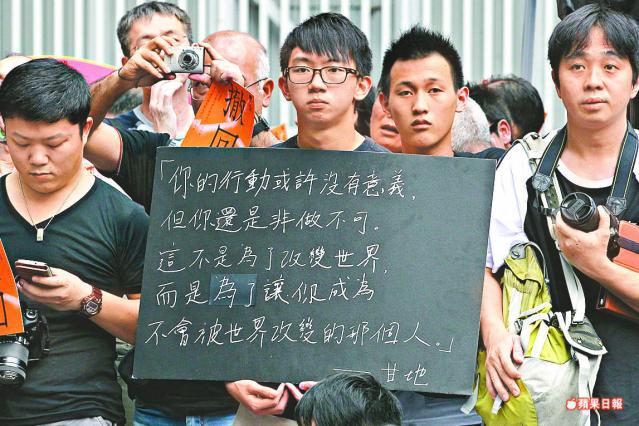 撤
回
「你的行動或許没有意義,
但你還是非做不可。
這不是為了改變世界,
而是為了讓你成為
不會被世界改變的那個人。」
── 甘地
蘋果日報